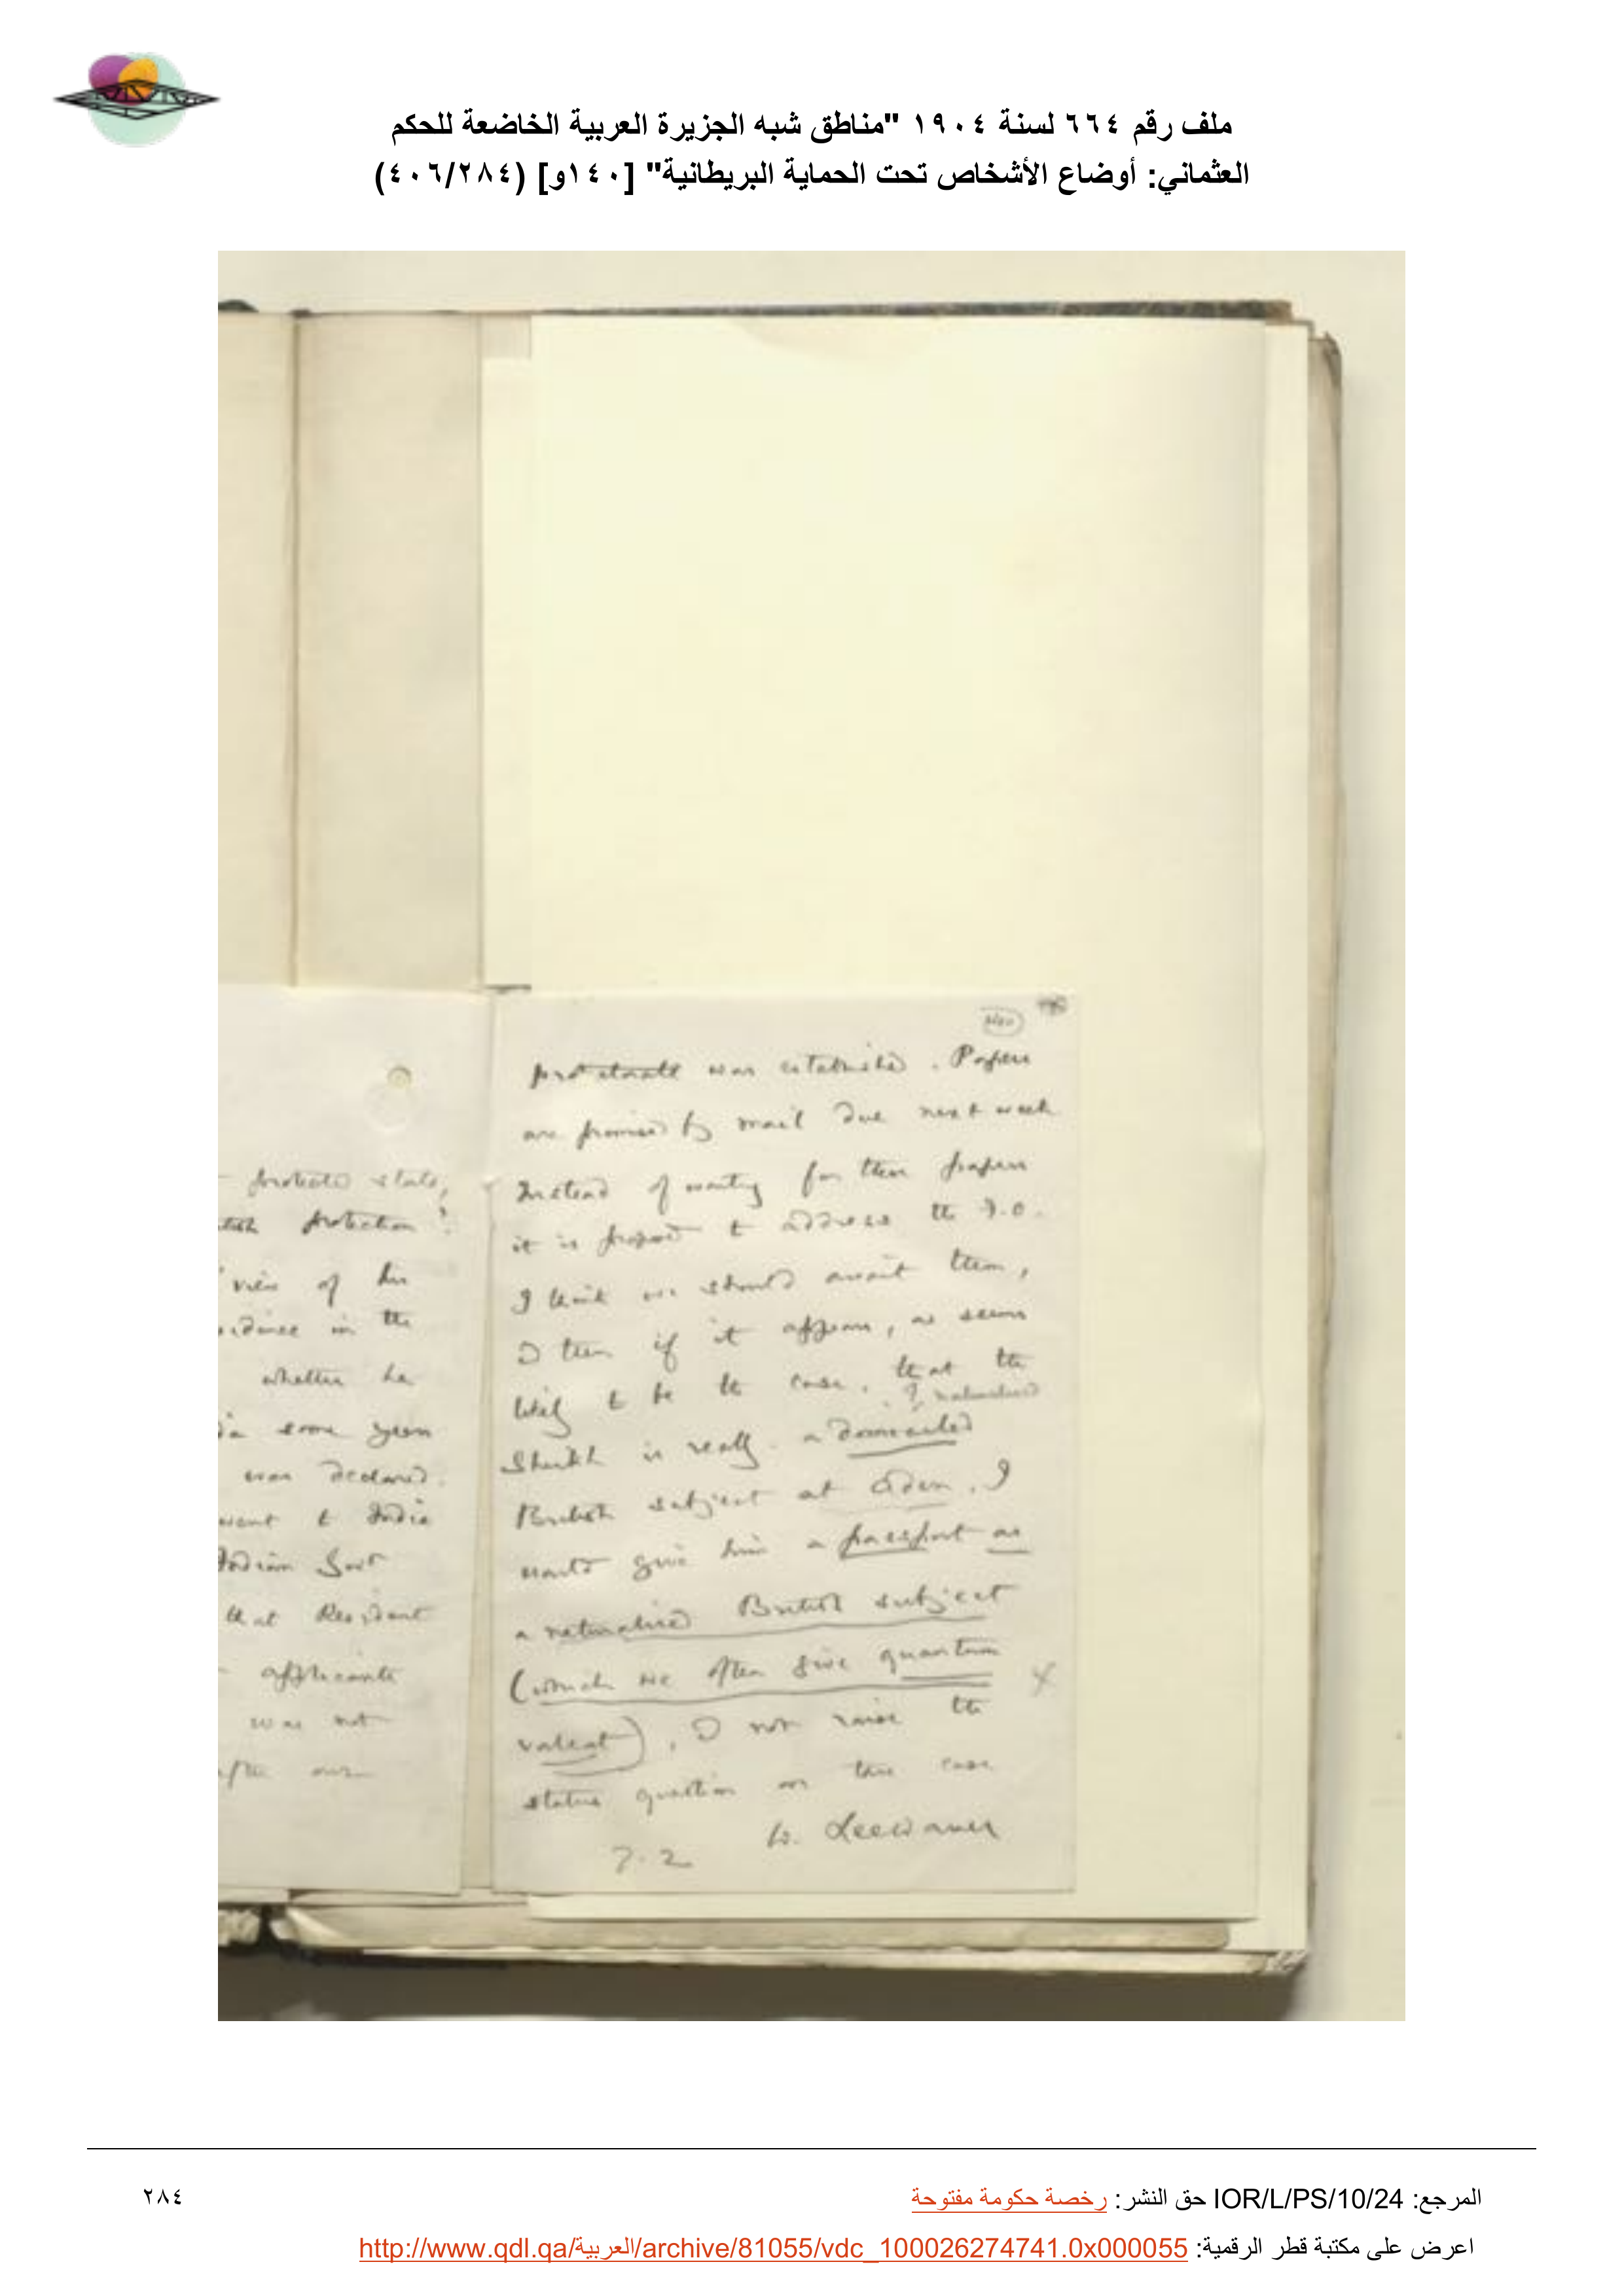 ملف رقم ٦٦٤ لسنة ١٩٠٤ "مناطق شبه الجزيرة العربية الخاضعة للحكم
العثماني: أوضاع الأشخاص تحت الحماية البريطانية" [١٤٠و] (٤٠٦/٢٨٤)
protected state,
protection?
view of his
in the
whether he
some years
was declared.
went to India
Indian Govt
that Resident
applicants
was not
after our
protectorate was established. Papers
are promised by mail due next week
Instead of waiting for these papers
it is proposed to address the F.O.
I think we should await them,
& then if it appears, as seems
likely to be the case, that the
? naturalised
Sheikh is really a domiciled
British subject at Aden, I
would give him a passport as
a naturalised British subject
(which we often give quantum
valeat), & not raise the
status question on this case
W. Lee Warner
7.2
المرجع: IOR/L/PS/10/24 حق النشر: رخصة حكومة مفتوحة
٢٨٤
اعرض على مكتبة قطر الرقمية: http://www.qdl.qa/العربية/archive/81055/vdc_100026274741.0x000055